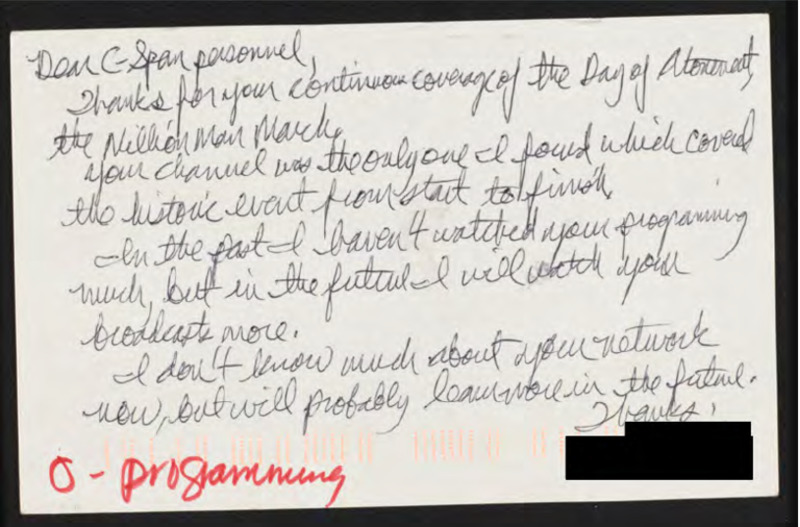 Dear C-Span personnel,
Thanks for your continuous coverage of the Day of Atonement,
the Million Man March.
Your channel was the only one I found which covered
the historic event from start to finish.
In the past I haven't watched your programming
much, but in the future I will watch your
broadcasts more.
I don't know much about your network
now, but will probably learn more in the future.
Thanks,
O - programming